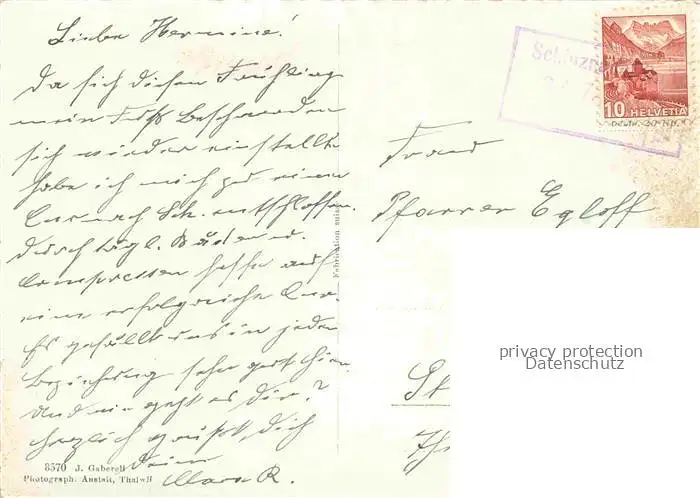 Liebe Hermine!
Da sich diesen Frühling
mein Fuss Beschwerden
sich wieder einstellte
habe ich mich zu einer
Kur nach Sch. entschlossen.
Durch tägl. Bäder u.
Compressen hoffe auf
eine erfolgreiche Kur.
Es gefällt uns in jeder
Beziehung sehr gut hier.
Und wie geht es Dir?
Herzlich grüsst Dich
Deine
Clara R.
8570 J. Gaberell
Photograph. Anstalt, Thalwil
Fabrication suisse
Schinzn
10 HELVETIA
Frau
Pfarrer Egloff
St
privacy protection
Datenschutz